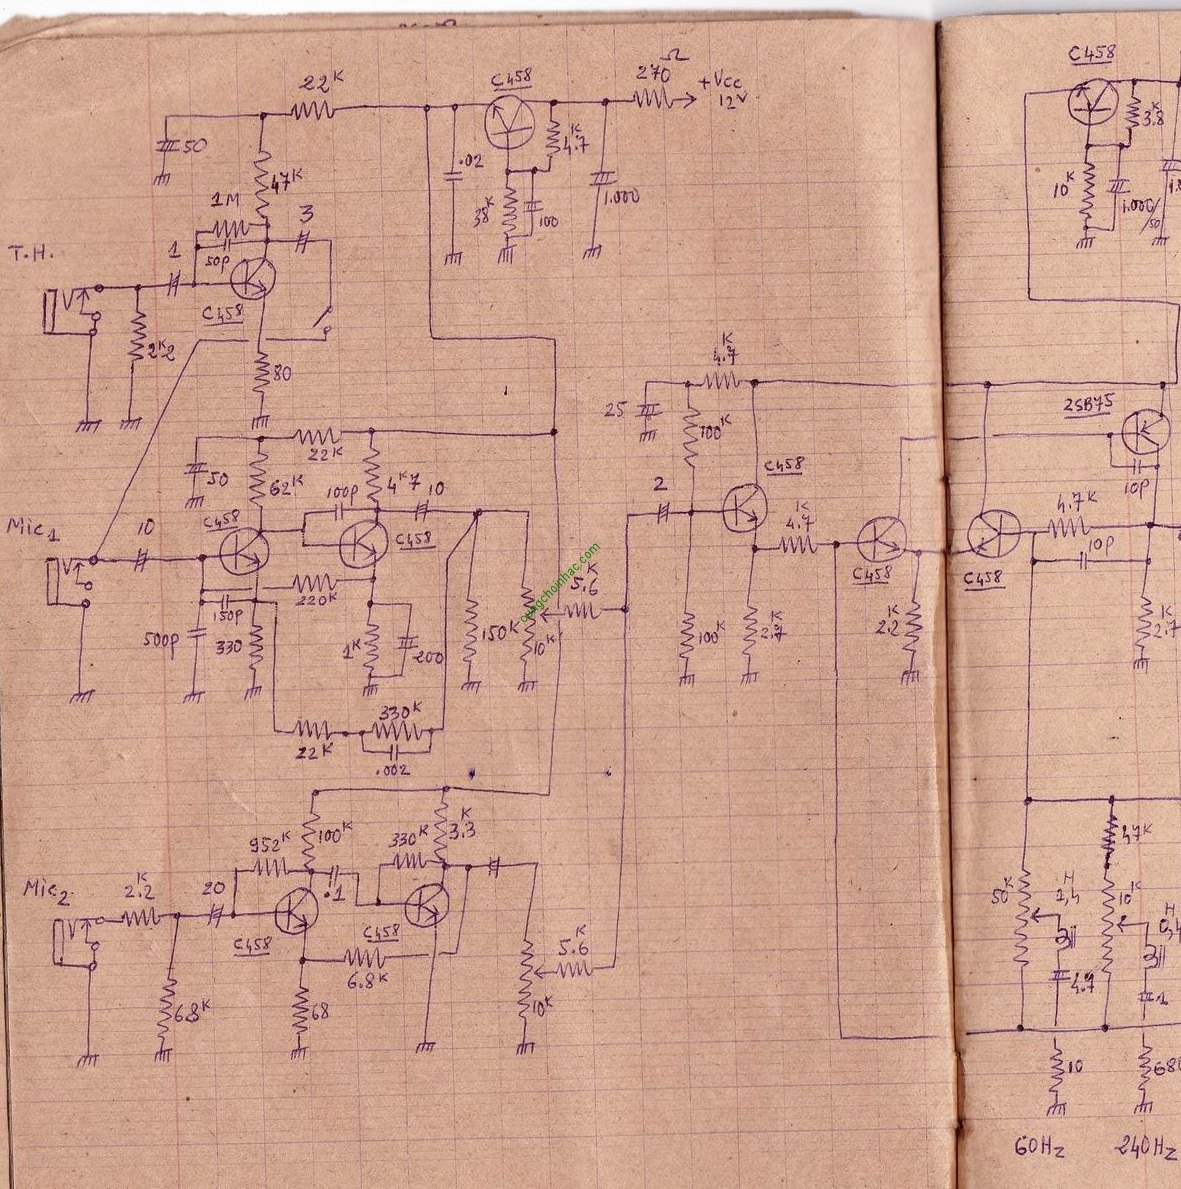 22K
C458
270 Ω
+Vcc
12V
50
47K
.02
4.7K
38K
100
1.000
1M
3
T.H.
1
50P
C458
2K2
80
C458
3.8K
10K
1.000/50
4.7K
25
100K
2SB75
22K
50
62K
100P
4K7
10
Mic1
10
C458
C458
2
C458
4.7K
4.7K
10P
10P
C458
C458
150P
220K
500P
330
1K
200
150K
10K
5.6K
dungchoinhac.com
100K
2.7K
2.2K
2.7K
22K
330K
.002
952K
100K
330K
3.3K
47K
Mic2
2.2K
20
.1
C458
C458
50K
H
1,4
10K
H
0,4
6.8K
5.6K
4.7
1
68K
68
10K
10
680
60Hz
240Hz